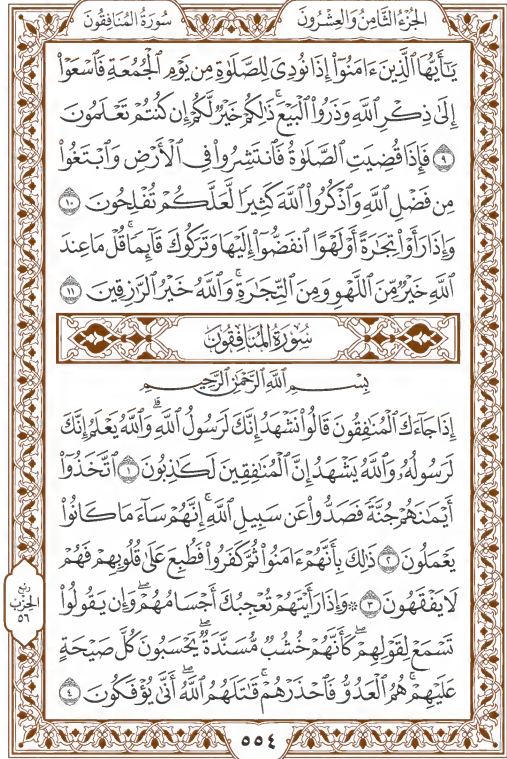 الجُزْءُ الثَّامِنُ وَالعِشْرُونَ سُورَةُ المُنَافِقُونَ
يَٰٓأَيُّهَا ٱلَّذِينَ ءَامَنُوٓا۟ إِذَا نُودِىَ لِلصَّلَوٰةِ مِن يَوْمِ ٱلْجُمُعَةِ فَٱسْعَوْا۟
إِلَىٰ ذِكْرِ ٱللَّهِ وَذَرُوا۟ ٱلْبَيْعَ ۚ ذَٰلِكُمْ خَيْرٌ لَّكُمْ إِن كُنتُمْ تَعْلَمُونَ
٩ فَإِذَا قُضِيَتِ ٱلصَّلَوٰةُ فَٱنتَشِرُوا۟ فِى ٱلْأَرْضِ وَٱبْتَغُوا۟
مِن فَضْلِ ٱللَّهِ وَٱذْكُرُوا۟ ٱللَّهَ كَثِيرًا لَّعَلَّكُمْ تُفْلِحُونَ ١٠
وَإِذَا رَأَوْا۟ تِجَٰرَةً أَوْ لَهْوًا ٱنفَضُّوٓا۟ إِلَيْهَا وَتَرَكُوكَ قَآئِمًا ۚ قُلْ مَا عِندَ
ٱللَّهِ خَيْرٌ مِّنَ ٱللَّهْوِ وَمِنَ ٱلتِّجَٰرَةِ ۚ وَٱللَّهُ خَيْرُ ٱلرَّٰزِقِينَ ١١
سُورَةُ المُنَافِقُونَ
بِسْمِ ٱللَّهِ ٱلرَّحْمَٰنِ ٱلرَّحِيمِ
إِذَا جَآءَكَ ٱلْمُنَٰفِقُونَ قَالُوا۟ نَشْهَدُ إِنَّكَ لَرَسُولُ ٱللَّهِ ۗ وَٱللَّهُ يَعْلَمُ إِنَّكَ
لَرَسُولُهُۥ وَٱللَّهُ يَشْهَدُ إِنَّ ٱلْمُنَٰفِقِينَ لَكَٰذِبُونَ ١ ٱتَّخَذُوٓا۟
أَيْمَٰنَهُمْ جُنَّةً فَصَدُّوا۟ عَن سَبِيلِ ٱللَّهِ ۚ إِنَّهُمْ سَآءَ مَا كَانُوا۟
يَعْمَلُونَ ٢ ذَٰلِكَ بِأَنَّهُمْ ءَامَنُوا۟ ثُمَّ كَفَرُوا۟ فَطُبِعَ عَلَىٰ قُلُوبِهِمْ فَهُمْ
لَا يَفْقَهُونَ ٣ ۞ وَإِذَا رَأَيْتَهُمْ تُعْجِبُكَ أَجْسَامُهُمْ ۖ وَإِن يَقُولُوا۟
تَسْمَعْ لِقَوْلِهِمْ ۖ كَأَنَّهُمْ خُشُبٌ مُّسَنَّدَةٌ ۖ يَحْسَبُونَ كُلَّ صَيْحَةٍ
عَلَيْهِمْ ۚ هُمُ ٱلْعَدُوُّ فَٱحْذَرْهُمْ ۚ قَٰتَلَهُمُ ٱللَّهُ ۖ أَنَّىٰ يُؤْفَكُونَ ٤
ربع
الحزب
٥٦
٥٥٤